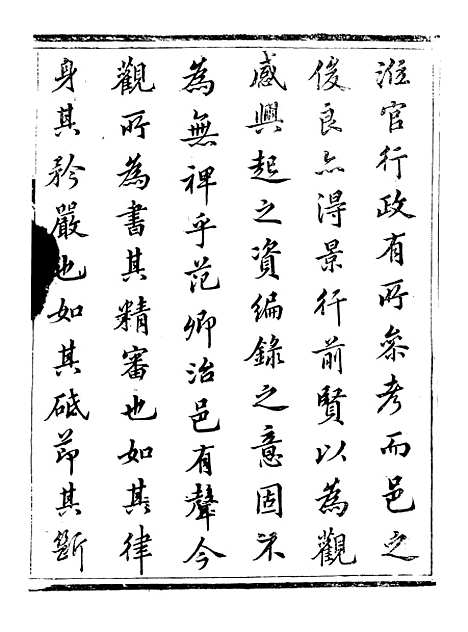 涖官行政有所叅考而邑之
俊良亦得景行前賢以為觀
感興起之資編錄之意固不
為無裨乎范卿治邑有聲今
觀所為書其精審也如其律
身其矜嚴也如其砥節其斷